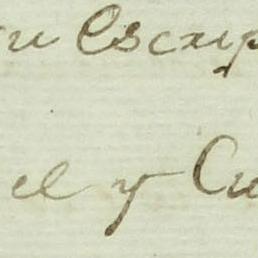 su Escrip
el y Cu